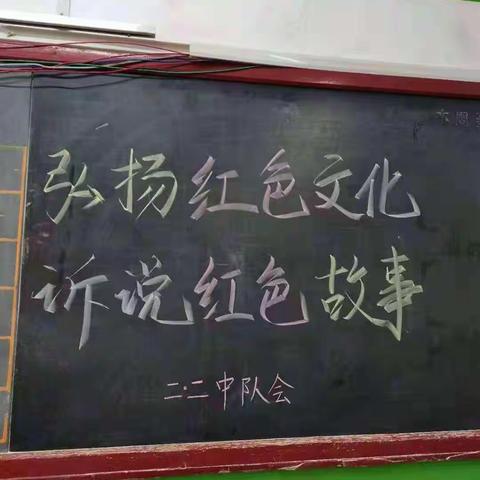 弘扬红色文化
诉说红色故事
二·二中队会